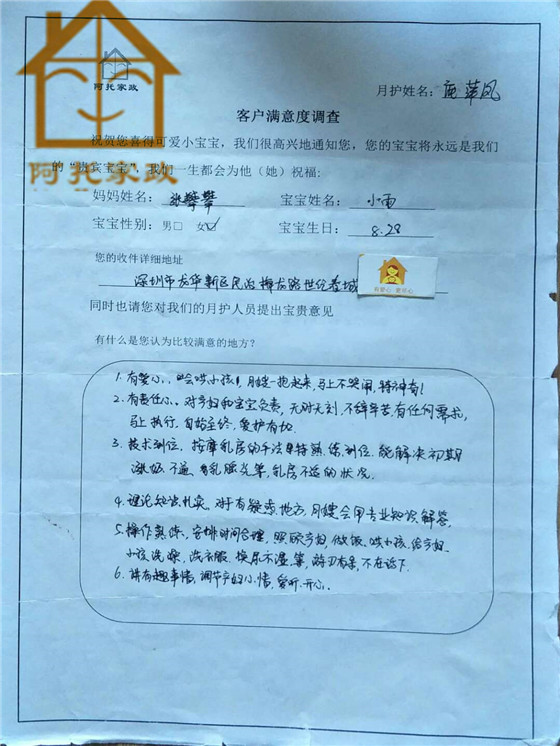 阿托家政
月护姓名：
客户满意度调查
祝贺您喜得可爱小宝宝，我们很高兴地通知您，您的宝宝将永远是我们
的“贵宾宝宝” 我们一生都会为他（她）祝福：
阿托家政
妈妈姓名： 张攀攀 宝宝姓名： 小雨
宝宝性别： 男□ 女☑ 宝宝生日： 8.28
您的收件详细地址
深圳市龙华新区民治梅龙路世纪春城
有爱心 更放心
同时也请您对我们的月护人员提出宝贵意见
有什么是您认为比较满意的地方？
1. 有爱心、会哄小孩，月嫂一抱起来，马上不哭闹，特神奇！
2. 有责任心。对孕妇和宝宝负责，无时无刻，不辞辛苦，有任何需求，
马上执行，自始至终，爱护有加.
3. 技术到位，按摩乳房的手法 特熟练到位，能解决初期
涨奶 不通 乳腺炎等，乳房不适的状况.
4. 理论知识扎实，对于有疑惑地方，月嫂会用专业知识解答.
5. 操作熟练，安排时间合理，照顾孕妇，做饭，哄小孩，给孕妇、
小孩洗澡，洗衣服，换尿不湿，等，游刃有余，不在话下.
6. 讲有趣事情，调节产妇心情，爱听、开心.